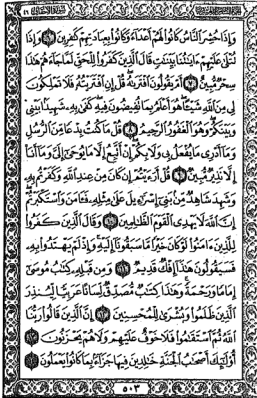 وَإِذَا حُشِرَ النَّاسُ كَانُوا لَهُمْ أَعْدَاءً وَكَانُوا بِعِبَادَتِهِمْ كَافِرِينَ ٦ وَإِذَا
تُتْلَىٰ عَلَيْهِمْ ءَايَاتُنَا بَيِّنَاتٍ قَالَ الَّذِينَ كَفَرُوا لِلْحَقِّ لَمَّا جَاءَهُمْ هَٰذَا
سِحْرٌ مُّبِينٌ ٧ أَمْ يَقُولُونَ افْتَرَاهُ قُلْ إِنِ افْتَرَيْتُهُ فَلَا تَمْلِكُونَ
لِي مِنَ اللَّهِ شَيْئًا هُوَ أَعْلَمُ بِمَا تُفِيضُونَ فِيهِ كَفَىٰ بِهِ شَهِيدًا بَيْنِي
وَبَيْنَكُمْ وَهُوَ الْغَفُورُ الرَّحِيمُ ٨ قُلْ مَا كُنتُ بِدْعًا مِّنَ الرُّسُلِ
وَمَا أَدْرِي مَا يُفْعَلُ بِي وَلَا بِكُمْ إِنْ أَتَّبِعُ إِلَّا مَا يُوحَىٰ إِلَيَّ وَمَا أَنَا
إِلَّا نَذِيرٌ مُّبِينٌ ٩ قُلْ أَرَءَيْتُمْ إِن كَانَ مِنْ عِندِ اللَّهِ وَكَفَرْتُم بِهِ
وَشَهِدَ شَاهِدٌ مِّن بَنِي إِسْرَٰءِيلَ عَلَىٰ مِثْلِهِ فَـَٔامَنَ وَاسْتَكْبَرْتُمْ
إِنَّ اللَّهَ لَا يَهْدِي الْقَوْمَ الظَّالِمِينَ ١٠ وَقَالَ الَّذِينَ كَفَرُوا
لِلَّذِينَ ءَامَنُوا لَوْ كَانَ خَيْرًا مَّا سَبَقُونَا إِلَيْهِ وَإِذْ لَمْ يَهْتَدُوا بِهِ
فَسَيَقُولُونَ هَٰذَا إِفْكٌ قَدِيمٌ ١١ وَمِن قَبْلِهِ كِتَابُ مُوسَىٰ
إِمَامًا وَرَحْمَةً وَهَٰذَا كِتَابٌ مُّصَدِّقٌ لِّسَانًا عَرَبِيًّا لِّيُنذِرَ
الَّذِينَ ظَلَمُوا وَبُشْرَىٰ لِلْمُحْسِنِينَ ١٢ إِنَّ الَّذِينَ قَالُوا رَبُّنَا
اللَّهُ ثُمَّ اسْتَقَامُوا فَلَا خَوْفٌ عَلَيْهِمْ وَلَا هُمْ يَحْزَنُونَ ١٣
أُولَٰئِكَ أَصْحَابُ الْجَنَّةِ خَالِدِينَ فِيهَا جَزَاءً بِمَا كَانُوا يَعْمَلُونَ ١٤
٥٠٣